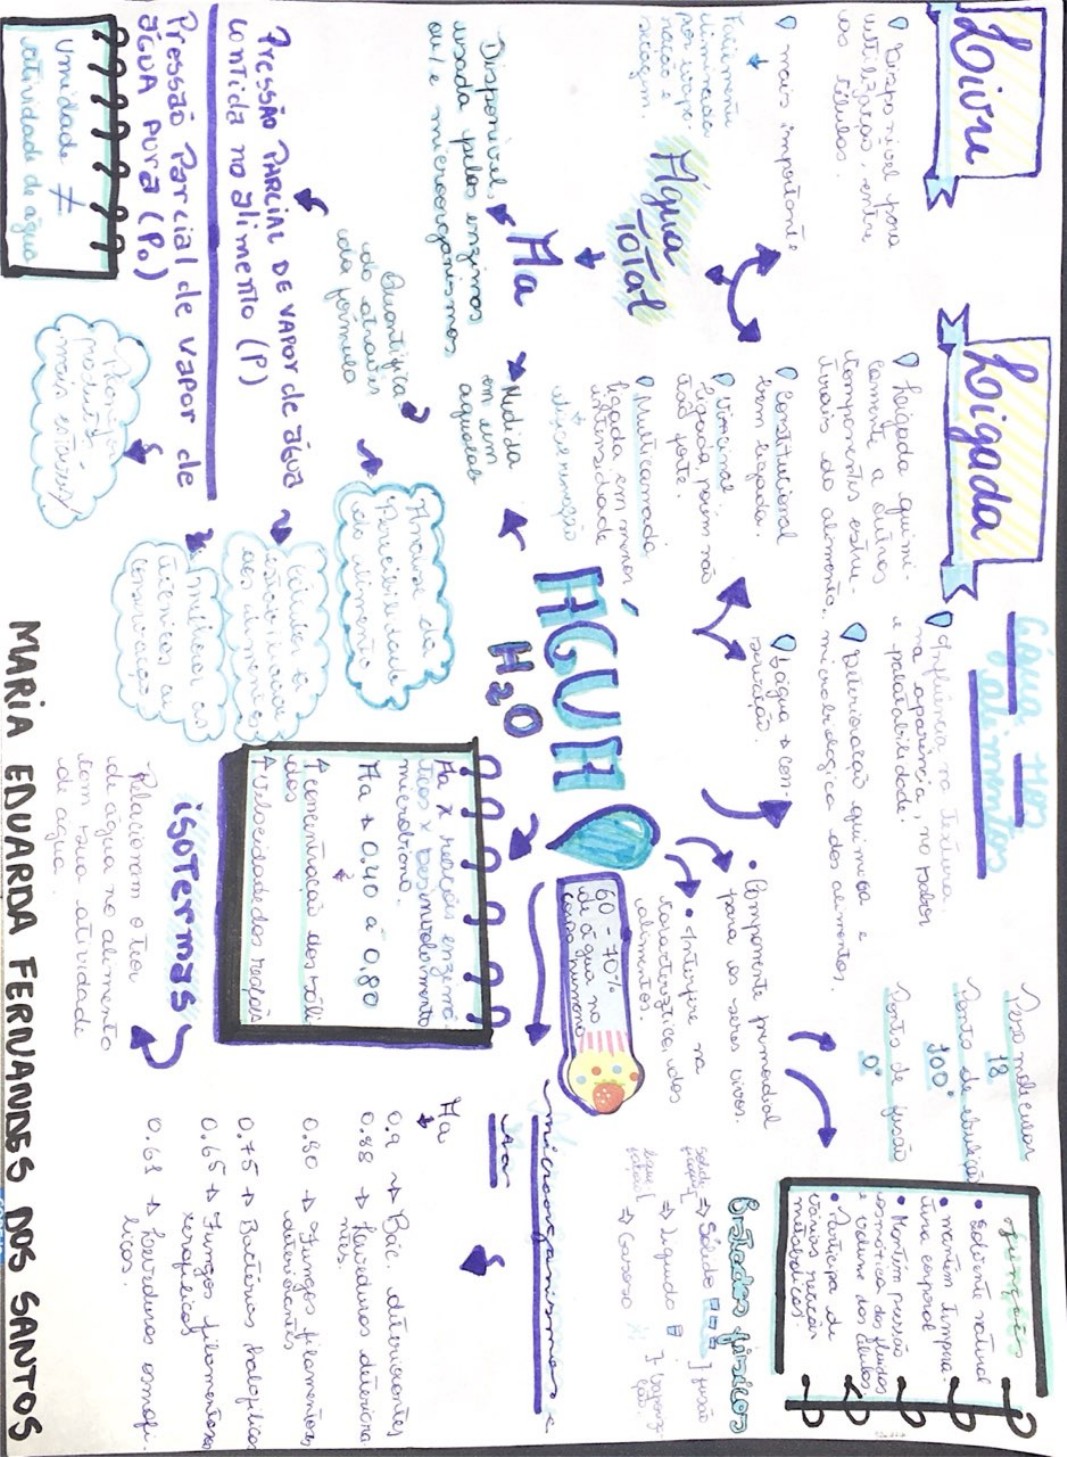 Livre
Disponível para
utilização, entre
as células.
mais importante
Facilmente
eliminada
por evapo-
ração e
secagem.
Água
TOTAL
Aa
Disponível,
usada pelas enzimas
ou/e microorganismos
Medida
em um
aqualab
Quantifica-
do através
da fórmula
PRESSÃO PARCIAL DE VAPOR de água
contida no alimento (P)
Pressão Parcial de vapor de
água pura (Po)
Umidade ≠
atividade de água
Ligada
Ligada quimi-
camente a outros
componentes estru-
turais do alimento.
Constitucional
bem ligada.
Vicinal:
Ligada, porém não
tão forte.
Multicamada
ligada em menor
intensidade
Água Nos
alimentos
Influência na textura,
na aparência, no sabor
e palatabilidade.
Deterioração química e
microbiológica dos alimentos.
↓água → con-
servação.
ÁGUA
H2O
60 - 70%
de água no
corpo humano
Componente primordial
para os seres vivos.
Interfere na
característica dos
alimentos.
Peso molecular
18
Ponto de ebulição
100°
Ponto de fusão
0°
funções
Solvente natural
mantém tempera-
tura corporal
Mantém pressão
osmótica dos fluidos
e volume das células
Participa de
várias reações
metabólicas
Estados físicos
Sólido
fusão
líquido
Gasoso
Análise da
Perecibilidade
do alimento
aos alimentos
melhor as
técnicas de
conservação
produtos
mais estáveis
Aa x reações enzimá-
ticas x desenvolvimento
microbiano.
Aa → 0.40 a 0,80
↑ concentração dos sóli-
dos
↑ Velocidade das reações
isoTermas
Relacionam o teor
de água no alimento
com sua atividade
de água.
microorganismos e
Aa
Aa
0.9 → Bac. deteriorantes
0.88 → Leveduras deterioran-
tes.
0.80 → Fungos filamentosos
deteriorantes
0.75 → Bactérias halofílicas
0.65 → Fungos filamentosos
xerofílicos
0.61 → Leveduras osmofí-
licas.
MARIA EDUARDA FERNANDES DOS SANTOS